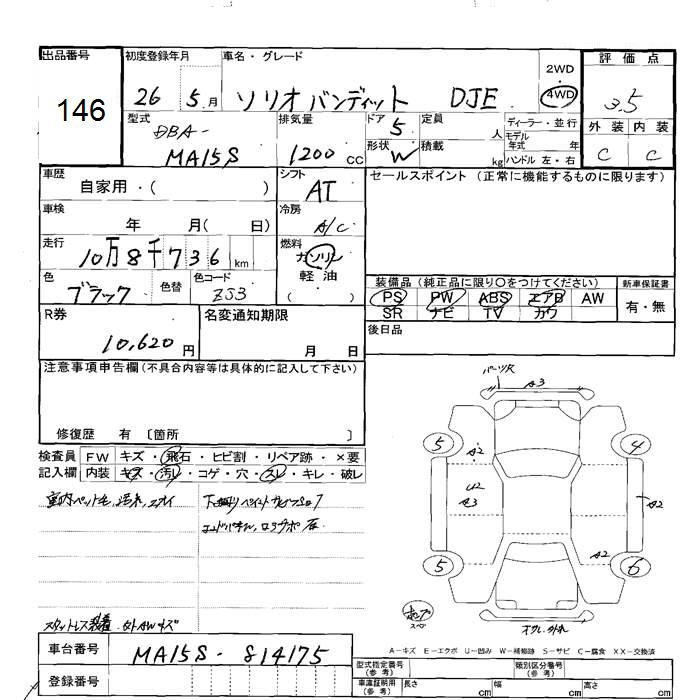 出品番号
146
初度登録年月
26 5 月
車名・グレード
ソリオ バンディット DJE
2WD
・
4WD
評価点
3.5
外装 内装
C C
型式
DBA-
MA15S
排気量
1200 CC
ドア
5
形状
W
定員
人
積載
kg
ディーラー・並行
モデル
年式 年
ハンドル 左・右
車歴
自家用・( )
シフト
AT
セールスポイント (正常に機能するものに限ります)
車検
年 月( 日)
冷房
A/C
走行
10万8千736 km
燃料
ガソリン
軽油
( )
色
ブラック
色替
色コード
ZJ3
装備品 (純正品に限り〇をつけてください)
PS PW ABS エアB AW
SR ナビ TV カワ
新車保証書
有・無
R券
10,620 円
名変通知期限
月 日
後日品
注意事項申告欄 (不具合内容等は具体的に記入して下さい)
修復歴 有 〔箇所 〕
検査員
記入欄
FW キズ・飛石・ヒビ割・リペア跡・×要
内装 キズ・汚レ・コゲ・穴・スレ・キレ・破レ
A3
5 4
A2
U2
A3
A2
A2
5 6
A-キズ E-エクボ U-凹み W-補修跡 S-サビ C-腐食 XX-交換済
車台番号
MA15S-814175
登録番号
型式指定番号
(参考)
類別区分番号
(参考)
車庫証明用
(参考)
長さ cm 幅 cm 高さ cm